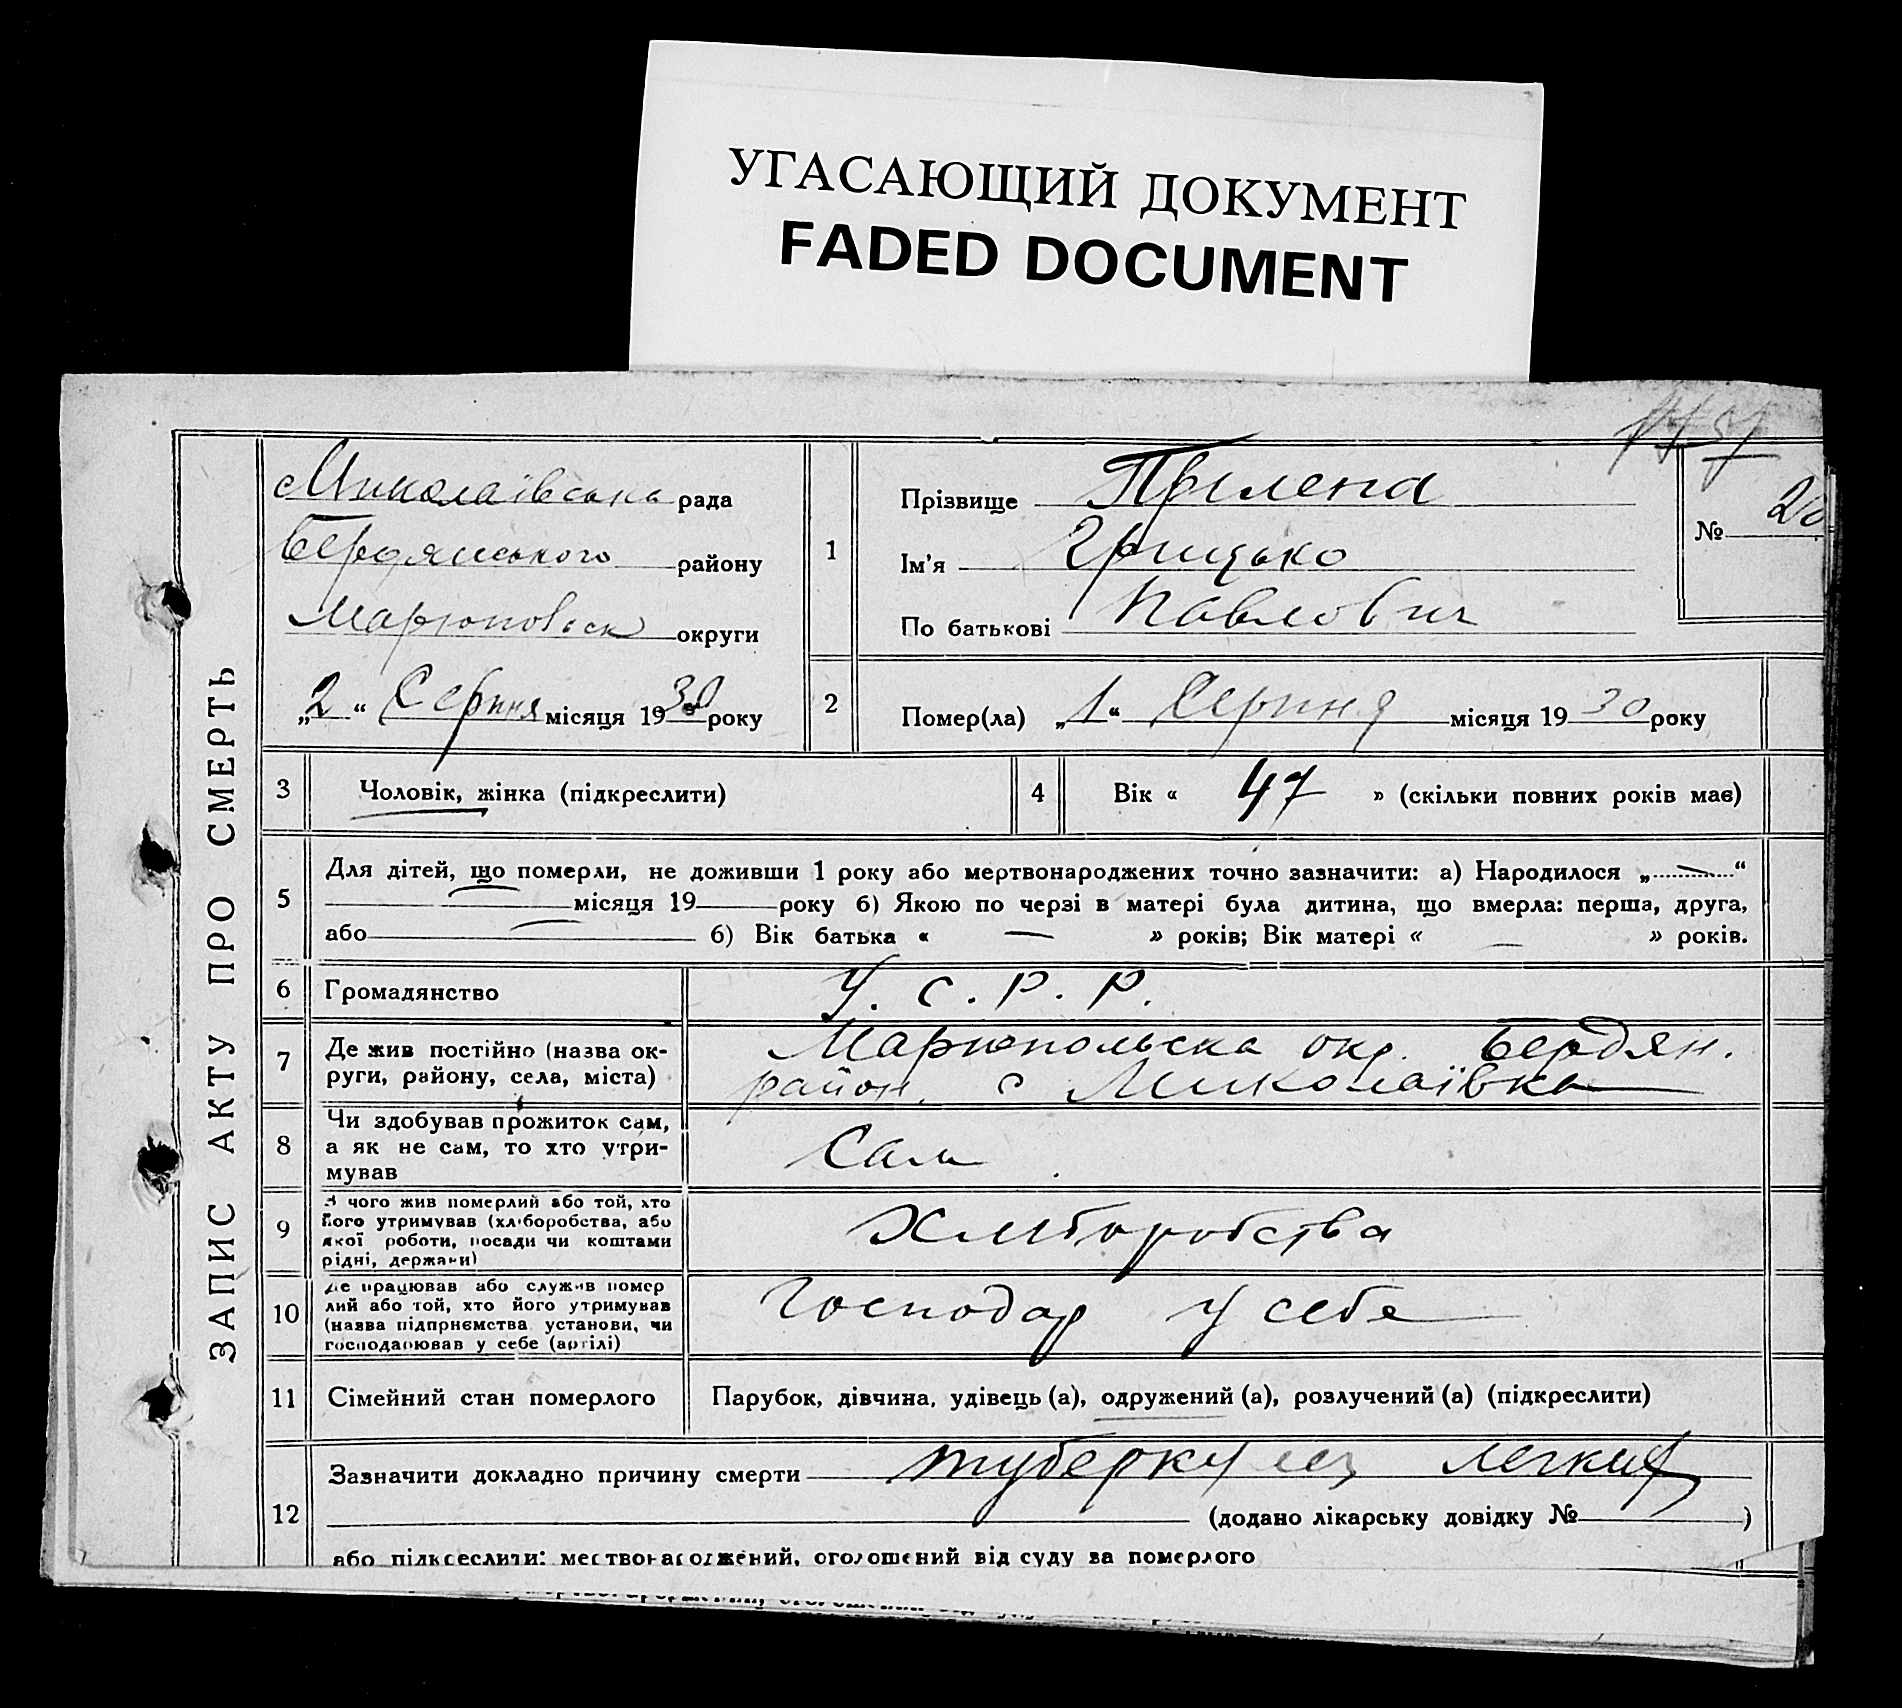 УГАСАЮЩИЙ ДОКУМЕНТ
FADED DOCUMENT
ЗАПИС АКТУ ПРО СМЕРТЬ
Миколаївська рада
Бердянського району
Маріюповськ округи
„2“ Серпня місяця 1930 року
1
Прізвище Прілепа
Ім'я Грицько
По батькові Павлович
№ 20
2
Помер(ла) „1“ Серпня місяця 1930 року
3
Чоловік, жінка (підкреслити)
4
Вік « 47 » (скільки повних років має)
5
Для дітей, що померли, не доживши 1 року або мертвонароджених точно зазначити: а) Народилося „ “
місяця 19 року б) Якою по черзі в матері була дитина, що вмерла: перша, друга,
або б) Вік батька « — » років; Вік матері « — » років.
6
Громадянство У. С. Р. Р.
7
Де жив постійно (назва ок-
руги, району, села, міста)
Маріюпольска окр. Бердян.
район. с Миколаївка
8
Чи здобував прожиток сам,
а як не сам, то хто утри-
мував
Сам
9
З чого жив померлий або той, хто
його утримував (хліборобства, або
якої роботи, посади чи коштами
рідні, держави)
Хліборобства
10
Де працював або служив помер
лий або той, хто його утримував
(назва підприємства установи, чи
господарював у себе (артілі)
Господар у себе
11
Сімейний стан померлого
Парубок, дівчина, удівець (а), одружений (а), розлучений (а) (підкреслити)
12
Зазначити докладно причину смерти туберкульоз легких
(додано лікарську довідку № )
або підкреслити: мертвонароджений, оголошений від суду за померлого